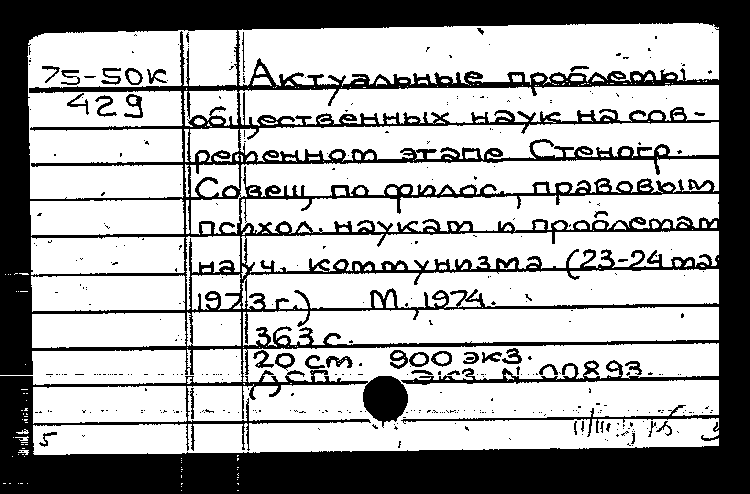 75-50к Актуальные проблемы
429
общественных наук на сов-
ременном этапе Стеногр.
Совещ, по филос., правовым
психол. наукам и проблемам
науч. коммунизма (23-24 мая
1973 г.) М., 1974.
363 с.
20 см. 900 экз.
ДСП. экз. N 00893.
5